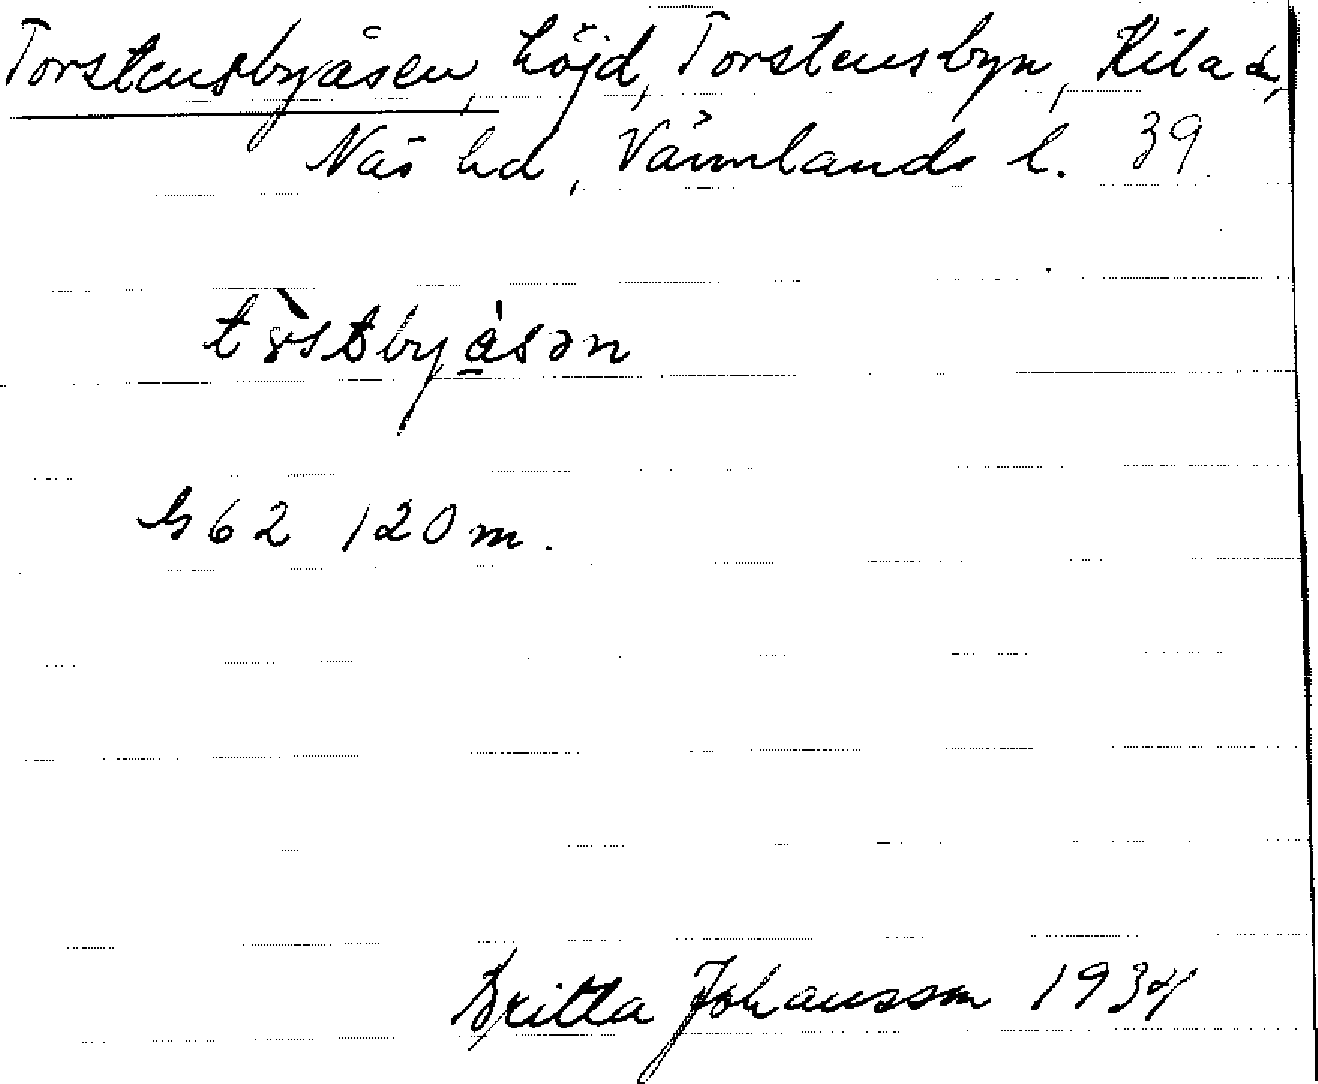 Torstensbyåsen, höjd, Torstensbyn, Kila sn,
Näs hd, Värmlands l. 39
byåsən
62 120 m.
Britta Johansson 1934